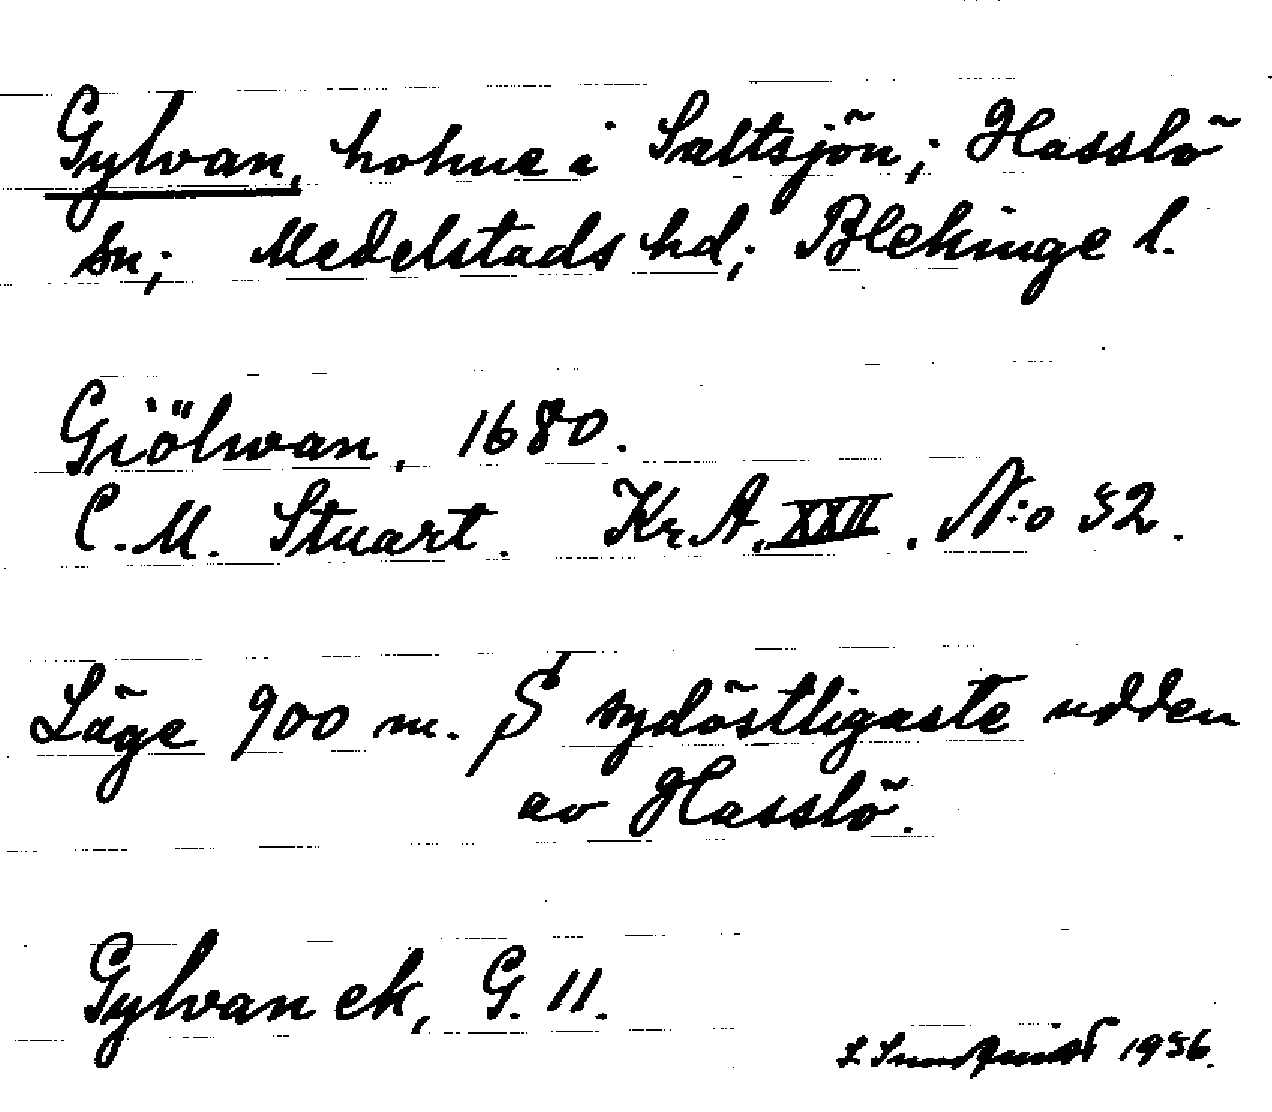 Gylvan, holme i Saltsjön; Hasslö
sn; Medelstads hd; Blekinge l.
Giölwan, 1680.
C. M. Stuart. Kr. A. XXII. N:o 52.
Läge 900 m. S sydöstligaste udden
av Hasslö.
Gylvan ek, G. 11.
1956.